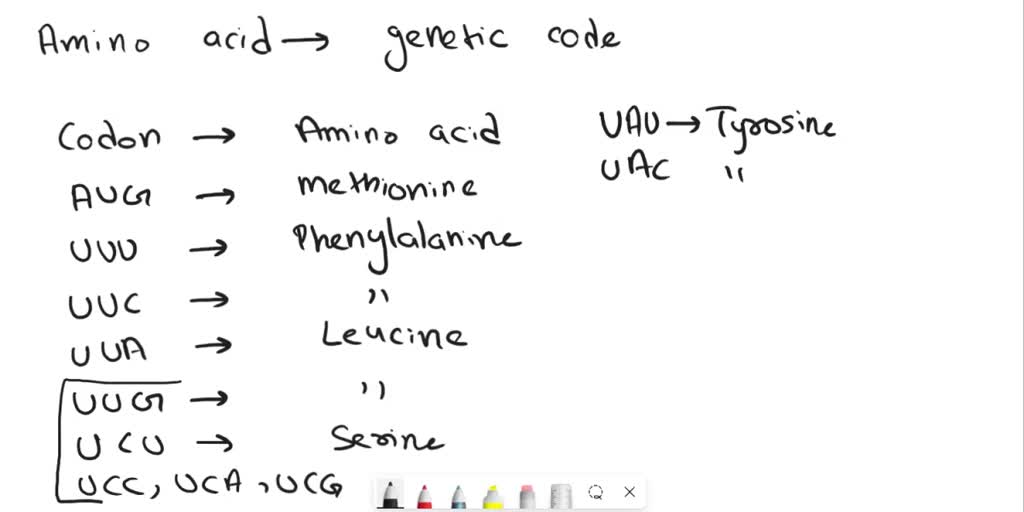 Amino acid → genetic code
Codon → Amino acid
AUG → methionine
UUU → Phenylalanine
UUC → "
UUA → Leucine
UUG → "
UCU → Serine
UCC, UCA, UCG
UAU → Tyrosine
UAC "